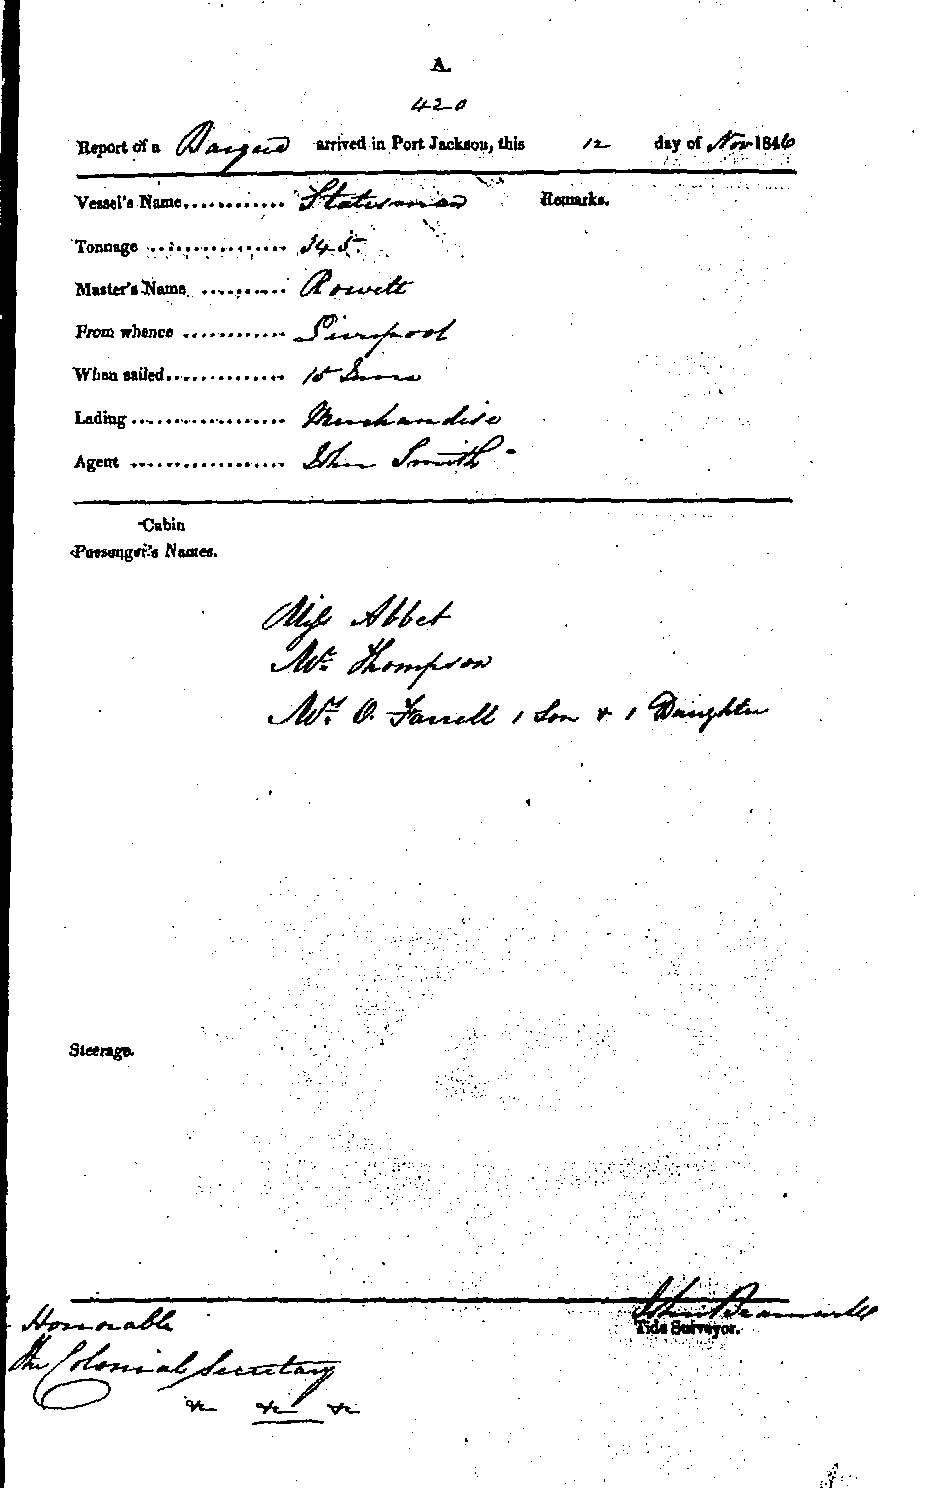 A.
420
Report of a Barque arrived in Port Jackson, this 12 day of Nov 1846
Vessel's Name............ Statesman Remarks.
Tonnage ................ 345
Master's Name .......... Rowett
From whence ............ Liverpool
When sailed.............. 15 June
Lading .................. Merchandise
Agent .................. John Smith
Cabin
Passenger's Names.
Miss Abbet
Mr. Thompson
Mrs. O. Farrell 1 Son & 1 Daughter
Steerage.
John
Tide Surveyor.
Honorable
the Colonial Secretary
&c &c &c